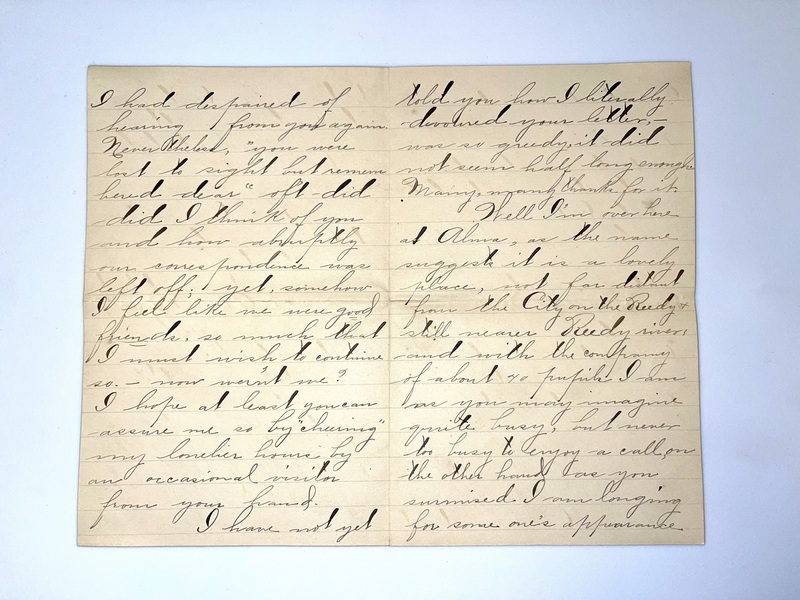 I had despaired of
hearing from you again
Nevertheless, "you were
lost to sight but remem
bered dear" oft did
did I think of you
and how abruptly
our correspondence was
left off; yet, somehow
I feel like we were good
friends, so much that
I must wish to continue
so. - now weren't we?
I hope at least you can
assure me so by "cheering"
my lonelier hours by
an occasional visitor
from your hand.
I have not yet
told you how I literally
devoured your letter,-
was so greedy, it did
not seem half long enough
Many, many thanks for it.
Well I'm over here
at Alma, as the name
suggests it is a lovely
place, not far distant
from the City on the Reedy &
still nearer Reedy river,
and with the company
of about 40 pupils I am
as you may imagine
quite busy, but never
too busy to enjoy a call, on
the other hand as you
surmised I am longing
for some one's appearance